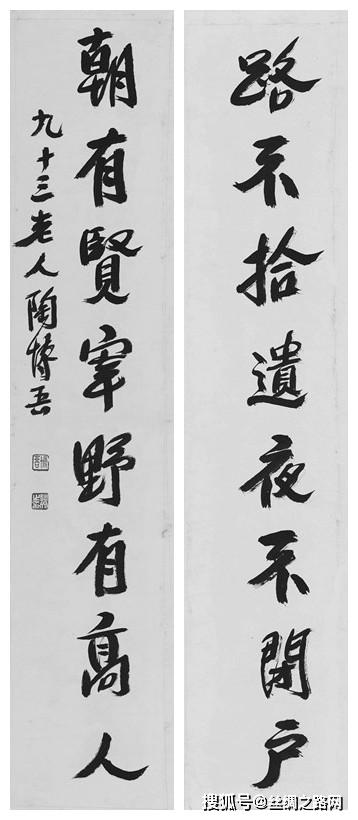 路不拾遺夜不閉户
朝有賢宰野有高人
九十三老人陶博吾
搜狐号@丝绸之路网